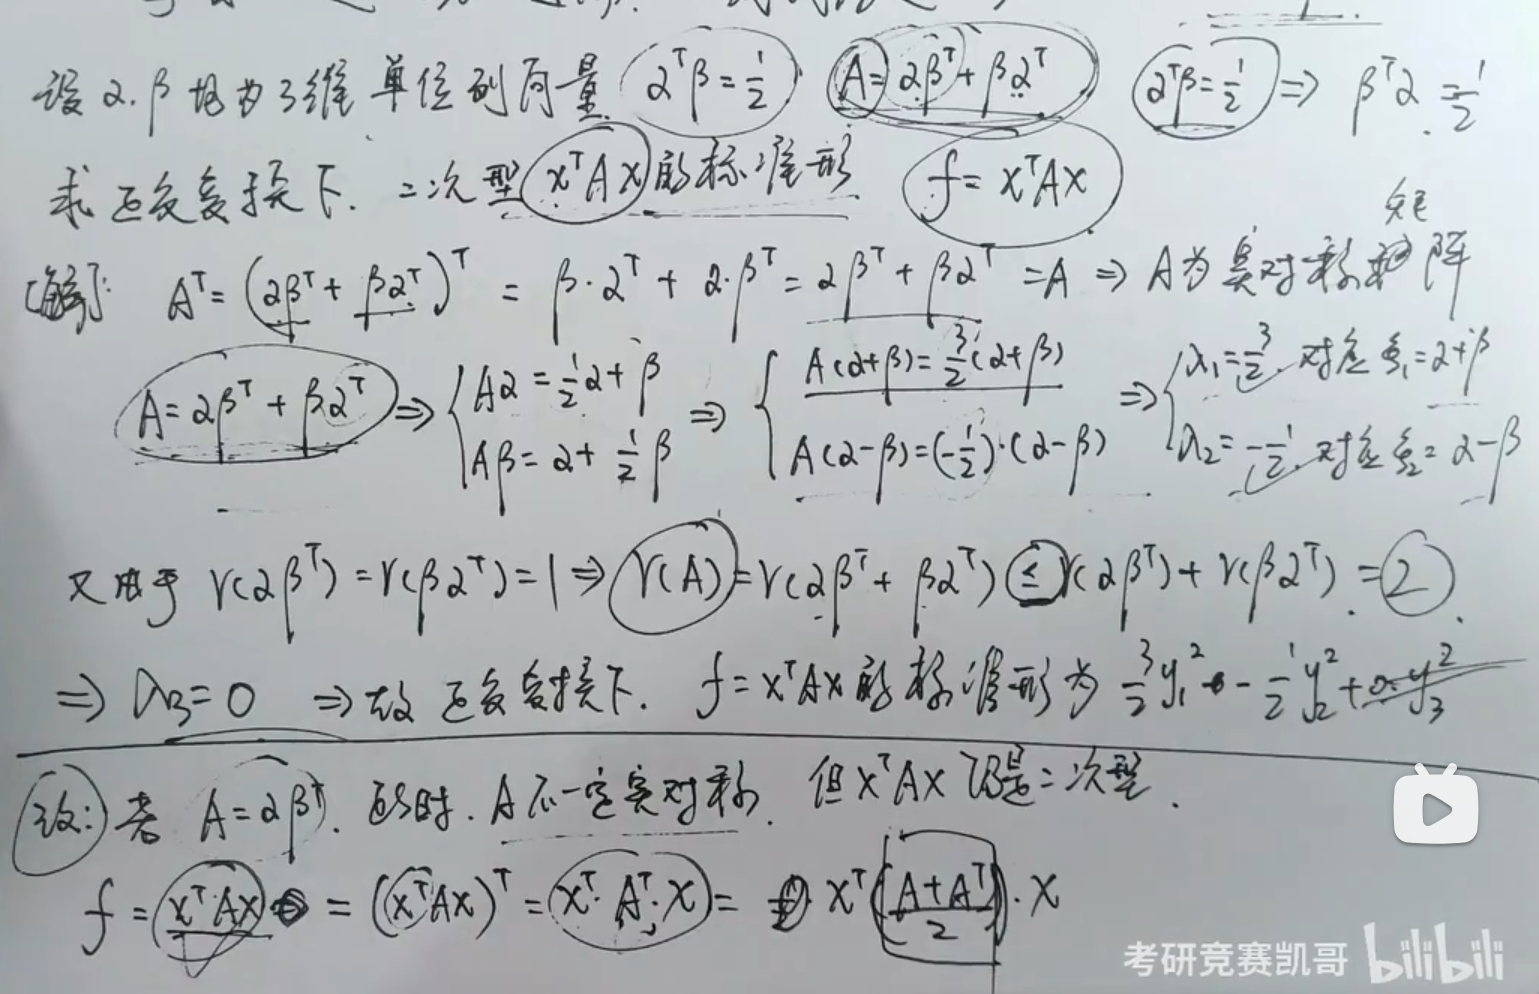 设α.β均为3维单位列向量 αᵀβ=1/2 A=αβᵀ+βαᵀ αᵀβ=1/2 ⇒ βᵀα=1/2
求正交变换下.二次型xᵀAx的标准形 f=xᵀAx
[解]: Aᵀ=(αβᵀ+βαᵀ)ᵀ = β·αᵀ+α·βᵀ=αβᵀ+βαᵀ=A ⇒ A为实对称矩阵
A=αβᵀ+βαᵀ ⇒ { Aα=1/2α+β Aβ=α+1/2β ⇒ { A(α+β)=3/2(α+β) A(α-β)=(-1/2)·(α-β) ⇒ { λ₁=3/2. 对应ξ₁=α+β λ₂=-1/2. 对应ξ₂=α-β
又由于 r(αβᵀ)=r(βαᵀ)=1 ⇒ r(A)=r(αβᵀ+βαᵀ)≤r(αβᵀ)+r(βαᵀ).=2.
⇒ λ₃=0 ⇒故正交变换下. f=xᵀAx的标准形为 3/2y₁²-1/2y₂²+0·y₃²
改: 若 A=αβᵀ. 此时.A不一定实对称. 但xᵀAx仍是二次型.
f=xᵀAx=(xᵀAx)ᵀ=xᵀ·Aᵀ·x= xᵀ(A+Aᵀ/2)·x
考研竞赛凯哥 bilibili